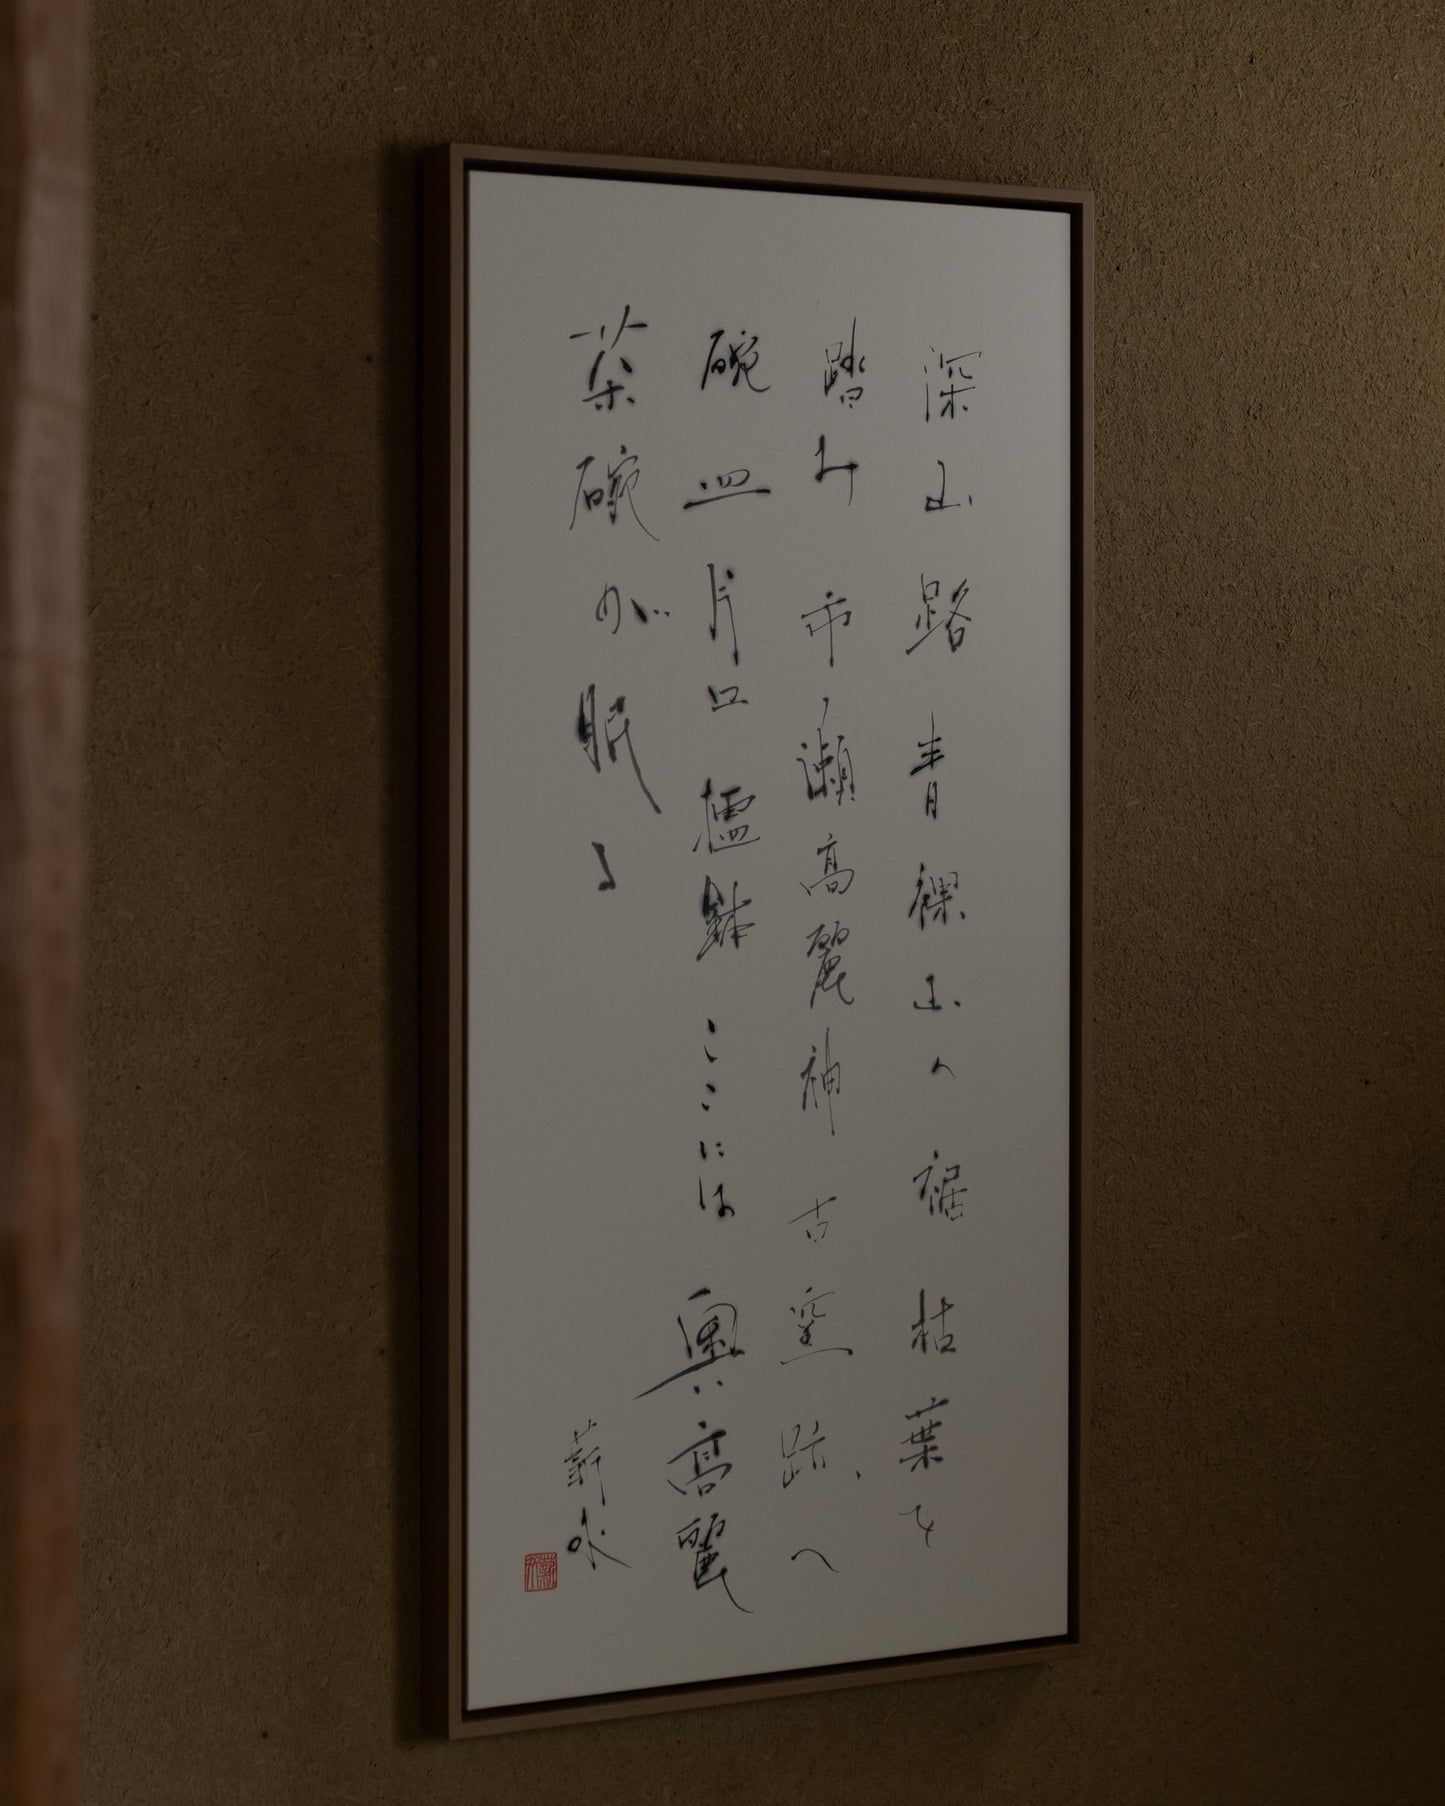 深山路 青裸山へ 裾 枯葉を
踏み 市ノ瀬高麗神 古窯跡へ
碗 皿 片口 擂鉢 ここには 奥高麗
茶碗が眠る